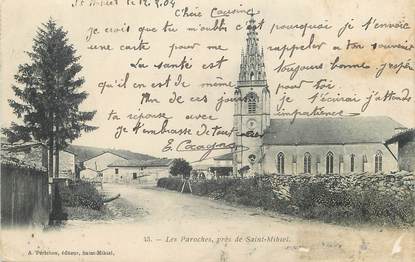 St Mihiel le 12.9.04
Chère Cousine
Je crois que tu m'oublies c'est pourquoi je t'envoie
une carte pour me rappeler a ton souvenir
La santé est toujours bonne j'espère
qu'il en est de même
Plus de ces jours je t'écirai j'attends
ta réponse avec impatience
Je t'embrasse de tout
E. Cocagne
13. Les Paroches, près de Saint-Mihiel.
éditeur, Saint-Mihiel.